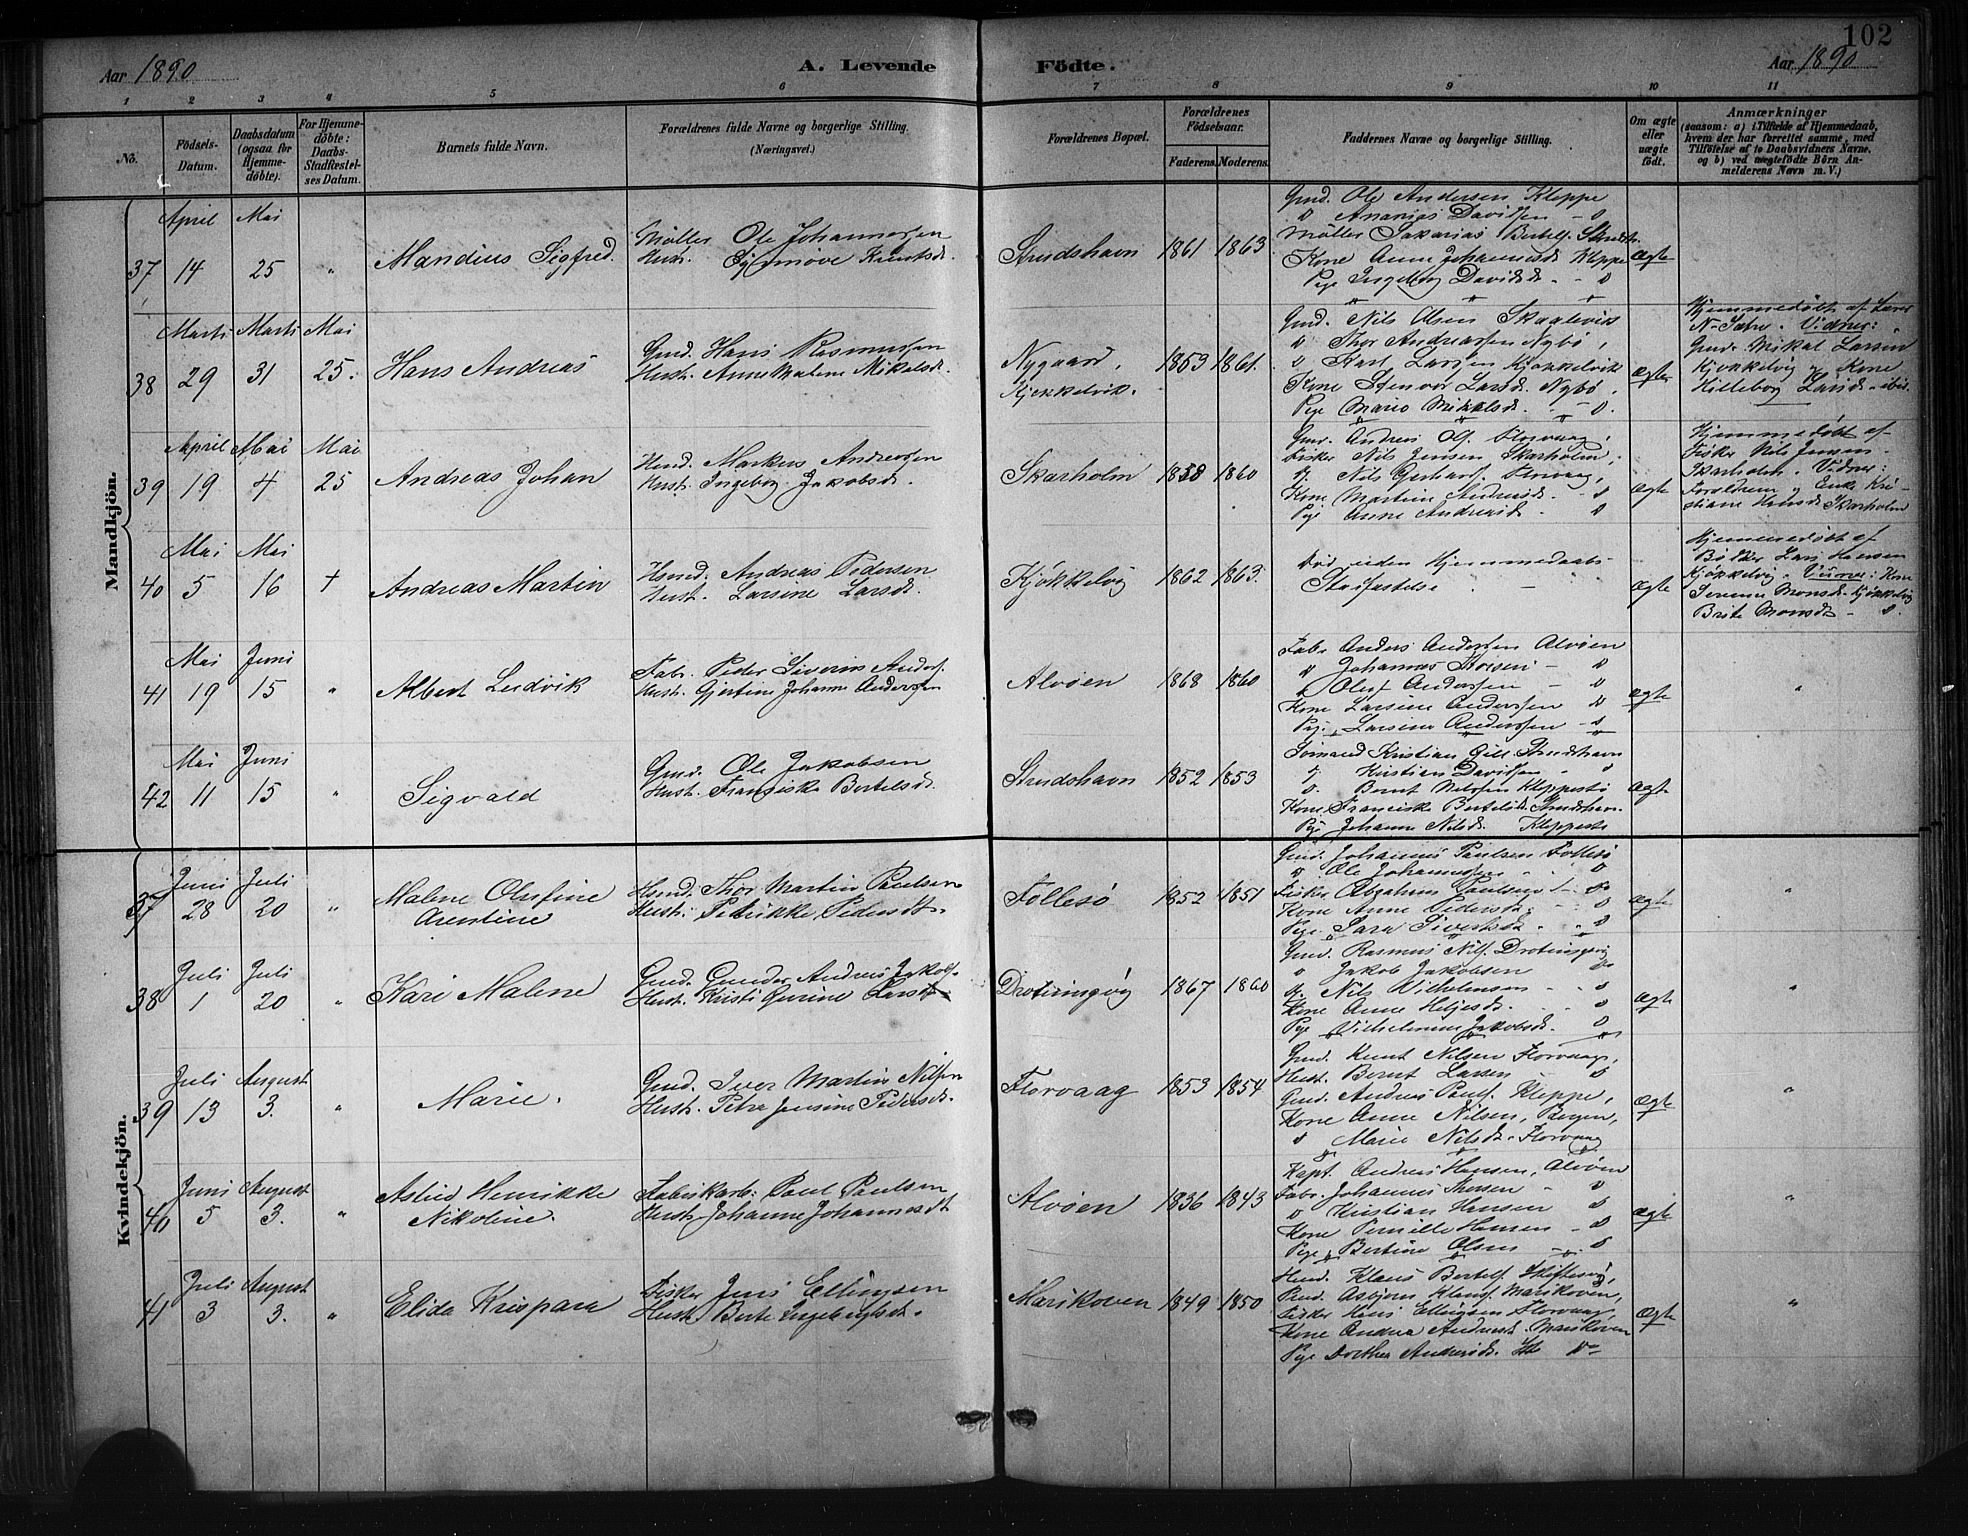 102
Aar 1890
A. Levende Födte.
Aar 1890
1 2 3 4 5 6 7 8 9 10 11
No.
Födsels-Datum.
Daabsdatum (ogsaa for Hjemme-döbte).
For Hjemme-döbte: Daabs-Stadfæstel-ses Datum.
Barnets fulde Navn.
Forældrenes fulde Navne og borgerlige Stilling.
(Næringsvei.)
Forældrenes Bopæl.
Forældrenes Födselsaar.
Faderens. Moderens.
Faddernes Navne og borgerlige Stilling.
Om ægte eller uægte födt.
Anmærkninger
(saasom: a) i Tilfælde af Hjemmedaab,
hvem der har forrettet samme, med
Tilföielse af to Daabsvidners Navne,
og b) ved uægtefödte Börn An-
melderens Navn m. V.)
Mandkjön.
37
April 14
Mai 25
"
Mandius Sigfred
Møller Ole Johannessen
Hust. Synnøve Knutsd.
Strudshavn
1861 1863
Gmd. Ole Andersen Kleppe
d Ananias Davidsen - d
Møller Sakarias Bertels. Strudsh.
Kone Anne Johannesd Kleppe
Pige Ingeborg Davidsd. - d
ægte
38
Marts 29
Marts 31
Mai 25.
Hans Andreas
Gmd. Hans Rasmussen
Hust. Anne Malene Mikelsd.
Nygaard,
Kjøkkelvik.
1853 1861.
Gmd. Nils Olsen
d Thor Andreassen Nybø,
d Karl Larssen Kjøkkelvik
Kone Stenvor Larsd. Nybø,
Pige Marie Mikkelsd. - d.
ægte
Hjemmedøbt af
Vidner:
Gmd. Mikal Larsen
Kjøkkelvig og Kone
Larsd. ibid.
39
April 19
Mai 4
Mai 25
Andreas Johan
Hmd. Markus Andreassen
Hust. Ingeborg Jakobsd.
Skarholm
1858 1860
Gmd. Andreas Ols. Florvaag,
Fisker Nils Jensen Skarholm,
d. Nils Gerhards. Florvaag,
Kone Martine Andreasd. - d
Pige Anne Andreasd. - d
ægte
Hjemmedøbt af
Fisker Nils Jensen
Skarholm. Vidner:
Forældrene og Enke Kri-
stiane Knudsd. Skarholm
40
Mai 5
Mai 16
†
Andreas Martin
Hsmd. Andreas Pedersen
Hust. Larsine Larsd.
Kjøkkelvig
1862 1863.
Død uden Hjemmedaabs-
Stadfæstelse
ægte
Hjemmedøbt af
Bødker Lars Hansen
Kjøkkelvig. Vidner: Kone
Serenne Monsd. Kjøkkelvig
Brite Monsd. - d.
41
Mai 19
Juni 15
"
Albert Ludvik
Fabr. Peder Siverin Anders.
Hust. Gjertine Johanne Andersen
Alvøen
1868 1860
Fabr Anders Andersen Alvøen
d Johannes Thorsen - d
d Oluf Anderssen - d
Kone Larsine Anderssen d
Pige Larsine Anderssen - d
ægte
"
42
Mai 11
Juni 15
"
Sigvald
Gmd. Ole Jakobsen
Hust. Franziska Bertelsd.
Strudshavn
1852 1853
Sømand Kristian Strudshavn
d. Kristian Davidsen - d
d. Bernt Nilssen Kleppestø
Kone Franciske Bertelsd. Strudshavn.
Pige Johanne Nilsd. Kleppestø
ægte
"
Kvindekjön.
37
Juni 28
Juli 20
"
Malene Olufine
Arentine
Hsmd. Thor Martin Paulsen
Hust. Petrikke Pedersdt.
Follesø
1852 1851
Gmd. Johannes Paulsen Follesø
d Ole Johannessen - d
Fisker Abraham Paulsen - d
Kone Anne Pedersd. - d
Pige Sara Sivertsd. - d
ægte
"
38
Juli 1
Juli 20
"
Kari Malene
Gmd. Gunder Andreas Jakobs.
Hust. Kristi Gurine Larsd.
Drotningvig
1867 1860
Gmd. Rasmus Nils. Drotningvig
d Jakob Jakobsen d
d. Nils Vilhelmsen - d
Kone Anne Heljesd. - d
Pige Vilhelmine Jakobsd. d
ægte
"
39
Juli 13
August 3.
"
Marie.
Gmd. Iver Martin Nilsen
Hust. Petra Jensine Pedersd.
Florvaag
1853 1854
Gmd. Knut Nilsen Florvaag,
Hust. Bernt Larsen d
Gmd. Andreas Pauls. Kleppe,
Kone Anne Nilsen, Bergen,
d Marie Nilsd. Florvaag
ægte
"
40
Juni 5
August 3.
"
Astrid Henrikke
Nikoline.
Fabrikarb: Paul Paulsen
Hust. Johanne Johannesdt
Alvøen
1836 1843
Kapt. Andreas Hansen, Alvøen
Fabr. Johannes Thorsen - d
d Kristian Hansen d
Kone Pernille Hansen - d
Pige Bertine Olsen - d
ægte
"
41
Juli 3
August 3.
"
Elida Krispara
Fisker Jens Ellingsen
Hust. Berte Ingebrigtsdt.
Marikoven
1849 1850
Hmd. Klaus Bertels.
Asbjørn Klaus. Marikoven,
Fisker Hans Ellingsen Florvaag,
Kone Andrea Andreasd. Marikoven
Pige Dorthea Andersd. d
ægte
"